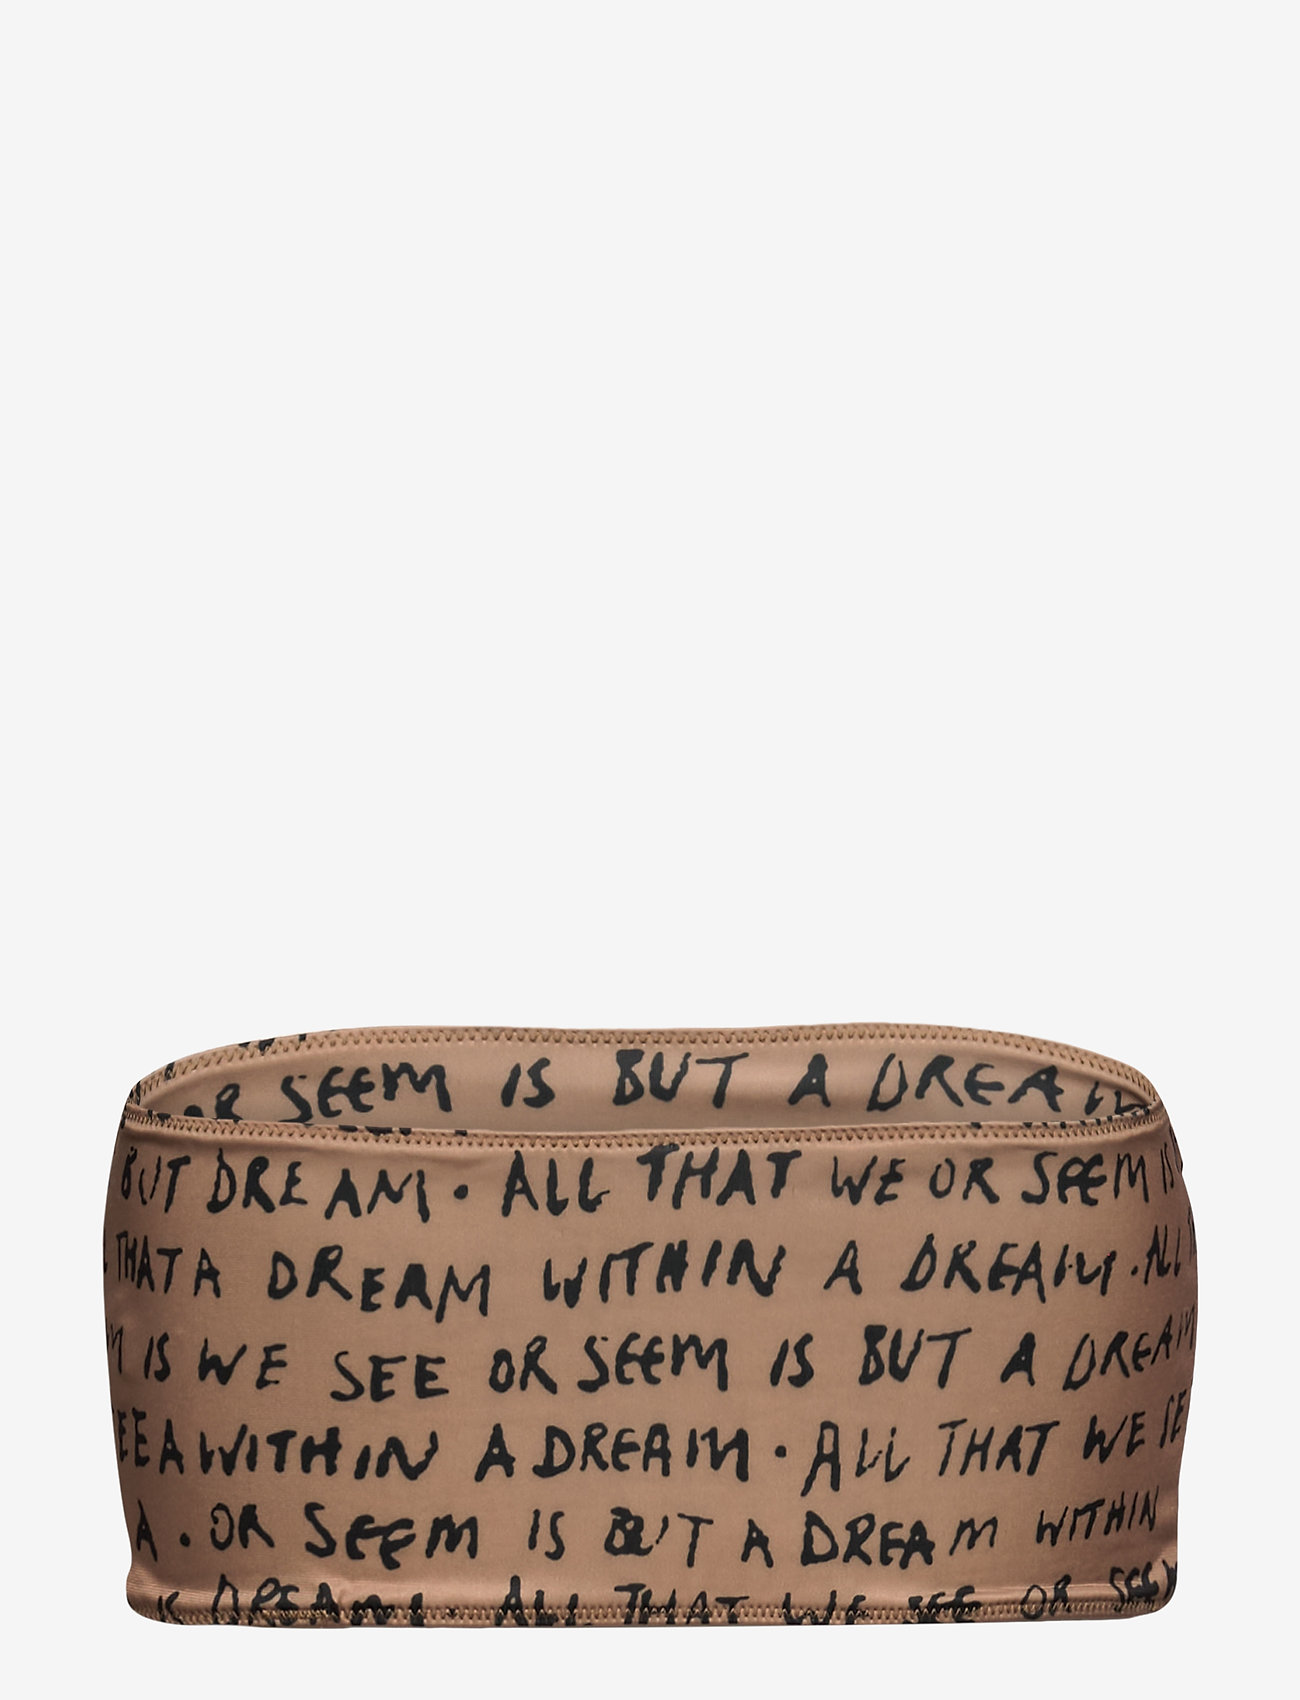 OR SEEM IS BUT A DREAM
BUT DREAM. ALL THAT WE OR SEEM IS
THAT A DREAM WITHIN A DREAM. ALL
IS WE SEE OR SEEM IS BUT A DREAM
A WITHIN A DREAM. ALL THAT WE SE
A. OR SEEM IS BUT A DREAM WITHIN
IS DREAM. ALL THAT WE SEE OR SEEM